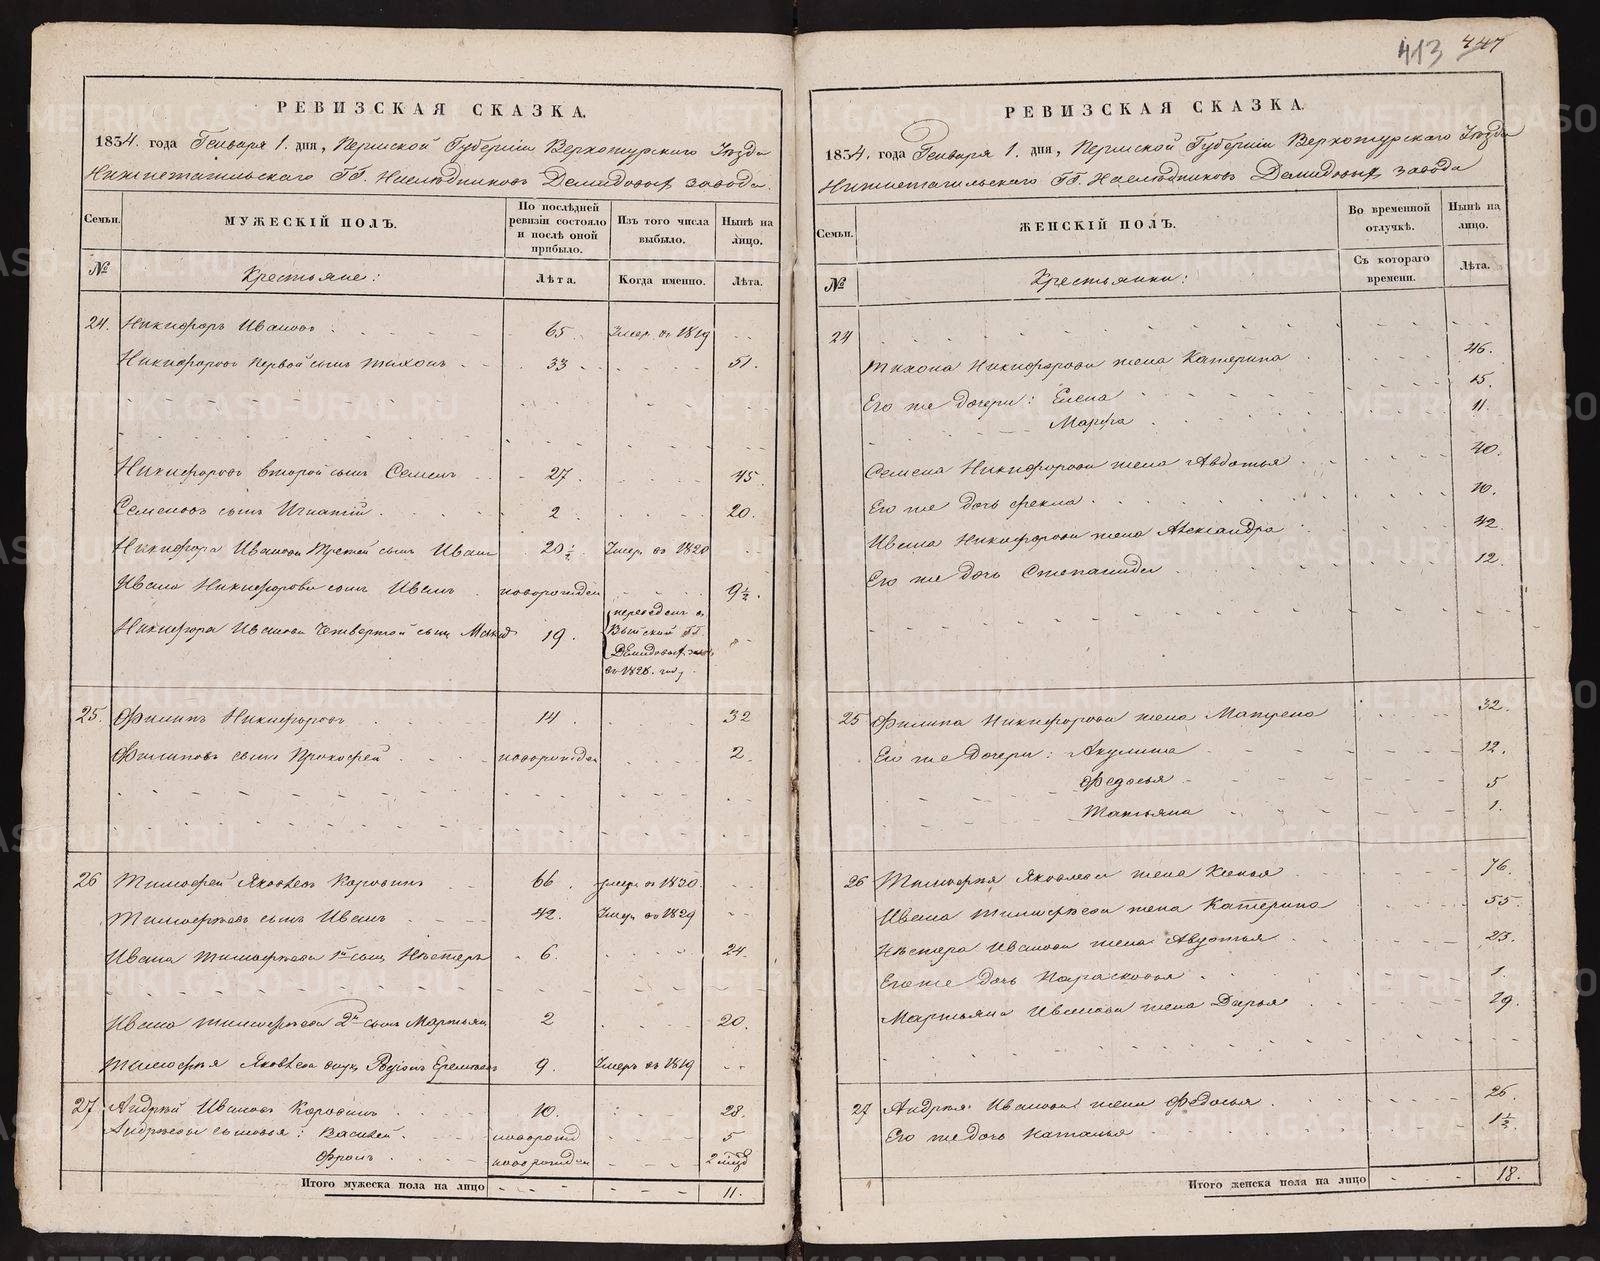 413 447
РЕВИЗСКАЯ СКАЗКА.
1834. года Генваря 1. дня, Пермской Губерніи Верхотурскаго Уѣзда
Нижнетагильскаго ГГ. Наслѣдниковъ Демидовыхъ завода.
Семьи.
МУЖЕСКІЙ ПОЛЪ.
По послѣдней ревизіи состояло и послѣ оной прибыло.
Изъ того числа выбыло.
Нынѣ на лицо.
№ Крестьяне: Лѣта. Когда именно. Лѣта.
24. Никифоръ Ивановъ 65 Умер. въ 1819
Никифоровъ первой сынъ Тихонъ 33 51.
Никифоровъ второй сынъ Семенъ 27 45.
Семеновъ сынъ Игнатій 2 20.
Никифора Иванова третей сынъ Иванъ 20½ Умер. въ 1820
Ивана Никифорова сынъ Иванъ новорожден 9½.
Никифора Иванова четвертой сынъ 19. переведенъ в Выйской ГГ. Демидовых зав. въ 1826. году
25. Филипъ Никифоровъ 14. 32
Филиповъ сынъ Прокофей новорожден 2.
26 Тимофей Яковлевъ Коровинъ 66. умеръ въ 1830.
Тимофѣевъ сынъ Иванъ 42. Умер. въ 1829
Ивана Тимофѣева 1й сынъ Нѣстеръ 6. 24.
Ивана Тимофѣева 2й сынъ Мартьянъ 2 20.
Тимофѣя Яковлева 9. Умеръ въ 1819
27. Андрѣй Ивановъ Коровинъ 10. 28.
Андрѣевы сыновья: Василей. новорожд 5
Фролъ. новорожден 2 мѣсяц
Итого мужеска пола на лицо 11.
РЕВИЗСКАЯ СКАЗКА.
1834. года Генваря 1. дня, Пермской Губерніи Верхотурскаго Уѣзда
Нижнетагильскаго ГГ. Наслѣдниковъ Демидовыхъ завода
Семьи.
ЖЕНСКІЙ ПОЛЪ.
Во временной отлучкѣ.
Нынѣ на лицо.
№ Крестьянки: Съ котораго времени. Лѣта.
24
Тихона Никифорова жена Катерина 46.
Его же дочери: Елена 15.
Марфа 11.
Семена Никифорова жена Авдотья 40.
Его же дочь Фекла 10.
Ивана Никифорова жена Александра 42.
Его же дочь Степанида 12.
25 Филипа Никифорова жена Матрена 32.
Его же дочери: Акулина 12.
Федосья 5
Татьяна 1.
26 Тимофѣя Яковлева жена Ксенья 76.
Ивана Тимофѣева жена Катерина 55.
Нѣстера Иванова жена Авдотья 23.
Его же дочь Парасковья 1.
Мартьяна Иванова жена Дарья 19.
27 Андрѣя Иванова жена Федосья 26.
Его же дочь Наталья 1½.
Итого женска пола на лицо 18.